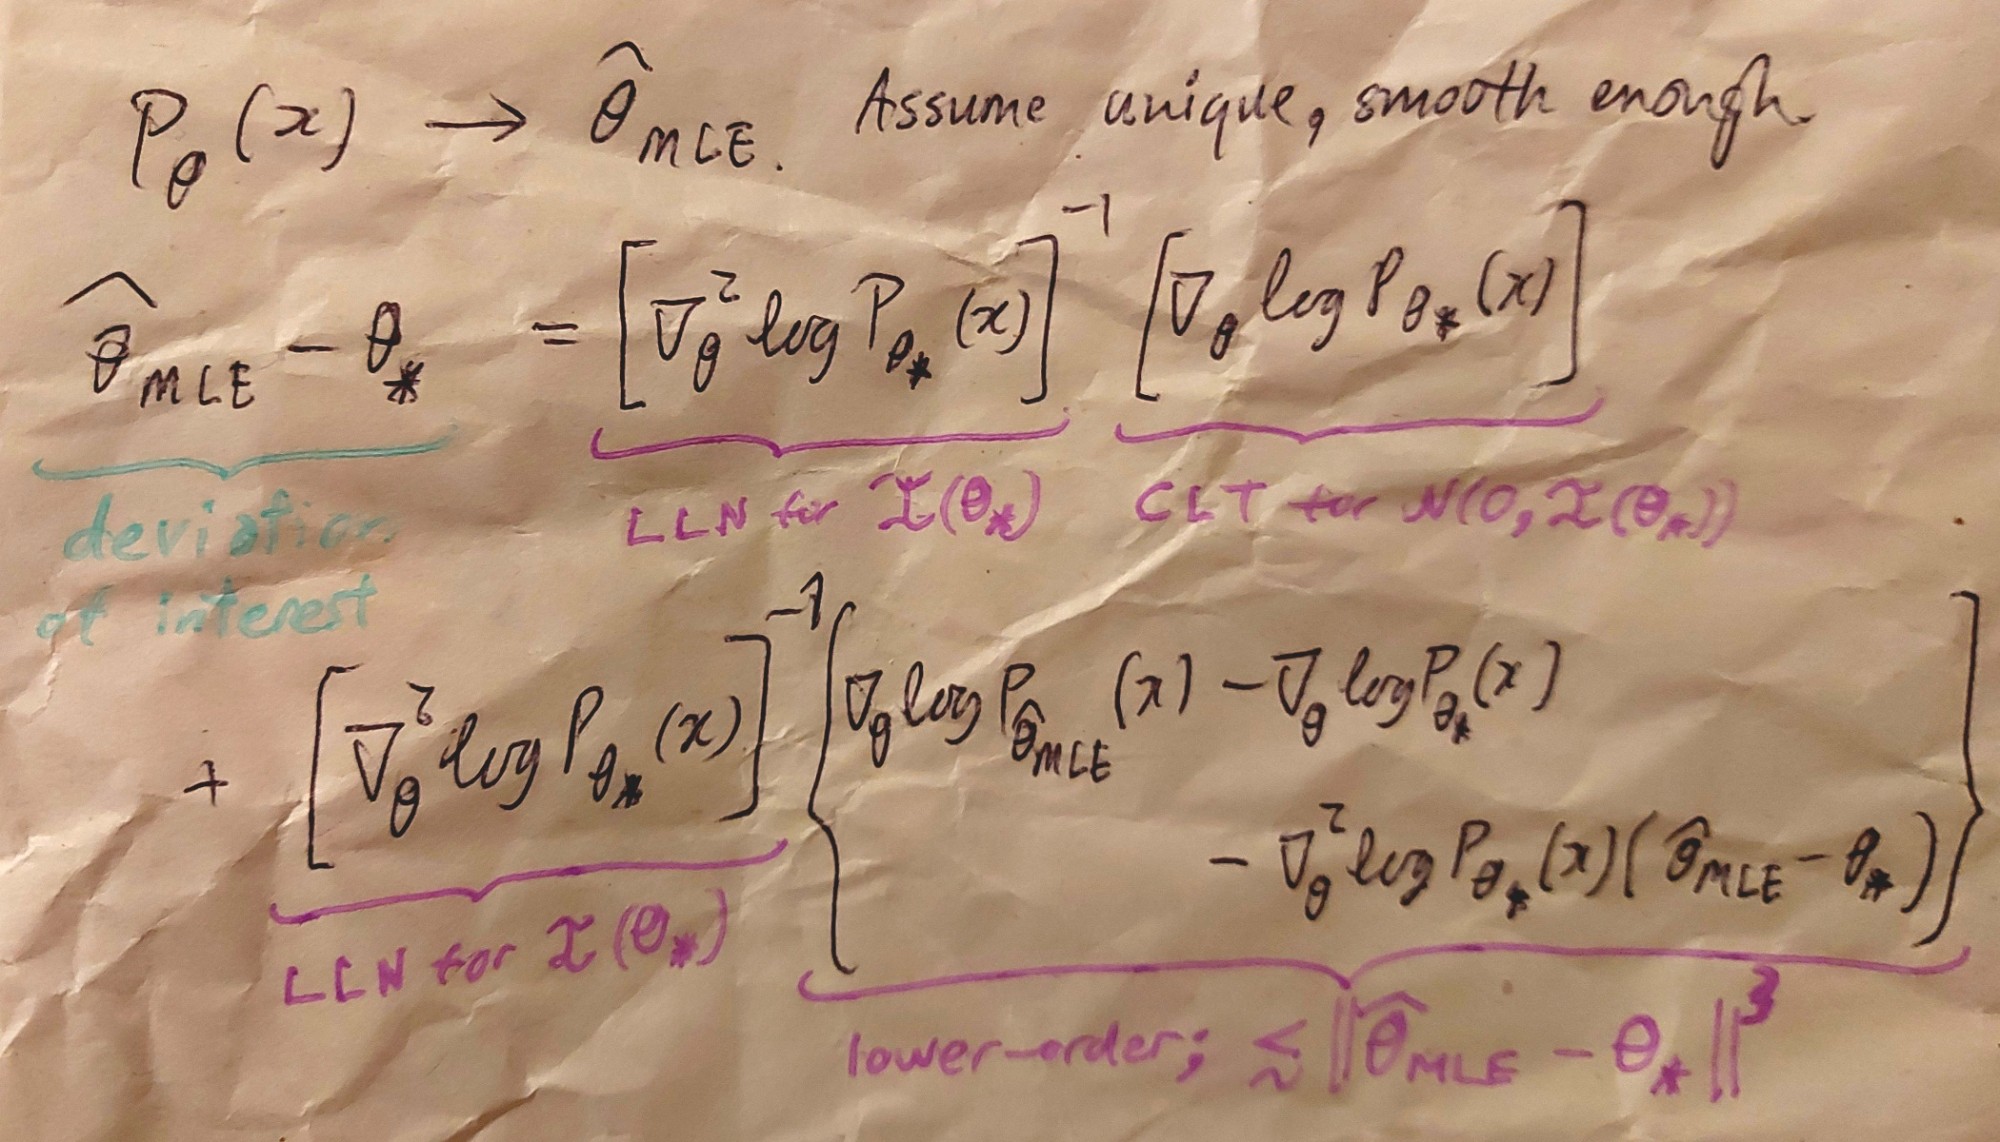 P_θ(x) → θ̂_MLE. Assume unique, smooth enough.
θ̂_MLE − θ_* = [∇²_θ log P_θ_*(x)]^−1 [∇_θ log P_θ_*(x)]
deviation of interest
LLN for I(θ_*)
CLT for N(0, I(θ_*))
+ [∇²_θ log P_θ_*(x)]^−1 {∇_θ log P_θ̂_MLE(x) − ∇_θ log P_θ_*(x)
− ∇²_θ log P_θ_*(x)(θ̂_MLE − θ_*)}
LLN for I(θ_*)
lower-order; ≲ ||θ̂_MLE − θ_*||³